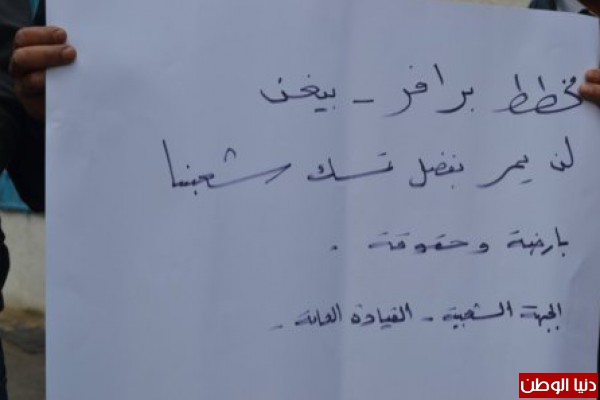 مخطط برافر - بيغن
لن يمر بفضل تمسك شعبنا
بارضة وحقوقة .
الجبهة الشعبية - القيادة العامة -
دنيا الوطن